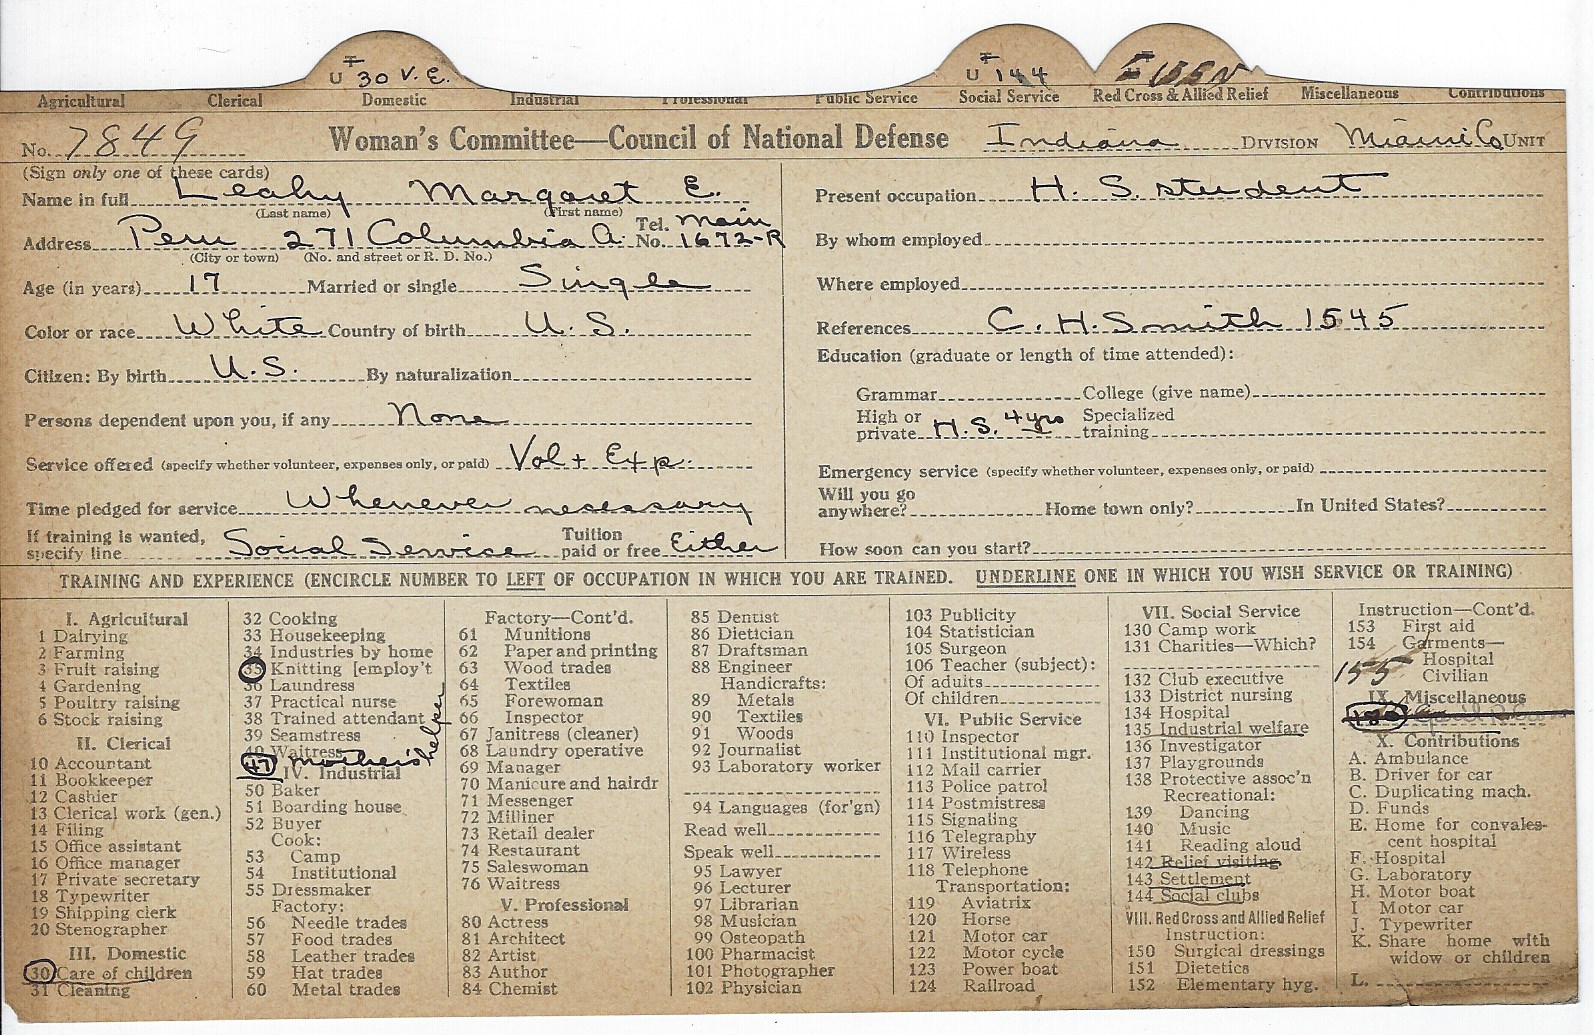 T
U 30 V. E.
T
U 144
155 V
Agricultural Clerical Domestic Industrial Professional Public Service Social Service Red Cross & Allied Relief Miscellaneous Contributions
No. 7849 Woman's Committee—Council of National Defense Indiana DIVISION Miami Co UNIT
(Sign only one of these cards)
Name in full Leahy Margaret E.
(Last name) (First name)
Address Peru 271 Columbia A. Tel. No. Main 1672-R
(City or town) (No. and street or R. D. No.)
Age (in years) 17 Married or single Single
Color or race White Country of birth U. S.
Citizen: By birth U.S. By naturalization
Persons dependent upon you, if any None
Service offered (specify whether volunteer, expenses only, or paid) Vol + Exp.
Time pledged for service Whenever necessary
If training is wanted, specify line Social Service Tuition paid or free Either
Present occupation H. S. student
By whom employed
Where employed
References C. H. Smith 1545
Education (graduate or length of time attended):
Grammar College (give name)
High or private H. S. 4 yrs Specialized training
Emergency service (specify whether volunteer, expenses only, or paid)
Will you go anywhere? Home town only? In United States?
How soon can you start?
TRAINING AND EXPERIENCE (ENCIRCLE NUMBER TO LEFT OF OCCUPATION IN WHICH YOU ARE TRAINED. UNDERLINE ONE IN WHICH YOU WISH SERVICE OR TRAINING)
I. Agricultural
1 Dairying
2 Farming
3 Fruit raising
4 Gardening
5 Poultry raising
6 Stock raising
II. Clerical
10 Accountant
11 Bookkeeper
12 Cashier
13 Clerical work (gen.)
14 Filing
15 Office assistant
16 Office manager
17 Private secretary
18 Typewriter
19 Shipping clerk
20 Stenographer
III. Domestic
30 Care of children
31 Cleaning
32 Cooking
33 Housekeeping
34 Industries by home
35 Knitting [employ't
36 Laundress
37 Practical nurse
38 Trained attendant
39 Seamstress
40 Waitress
47 mother's helper
IV. Industrial
50 Baker
51 Boarding house
52 Buyer
Cook:
53 Camp
54 Institutional
55 Dressmaker
Factory:
56 Needle trades
57 Food trades
58 Leather trades
59 Hat trades
60 Metal trades
Factory—Cont'd.
61 Munitions
62 Paper and printing
63 Wood trades
64 Textiles
65 Forewoman
66 Inspector
67 Janitress (cleaner)
68 Laundry operative
69 Manager
70 Manicure and hairdr
71 Messenger
72 Milliner
73 Retail dealer
74 Restaurant
75 Saleswoman
76 Waitress
V. Professional
80 Actress
81 Architect
82 Artist
83 Author
84 Chemist
85 Dentist
86 Dietician
87 Draftsman
88 Engineer
Handicrafts:
89 Metals
90 Textiles
91 Woods
92 Journalist
93 Laboratory worker
94 Languages (for'gn)
Read well
Speak well
95 Lawyer
96 Lecturer
97 Librarian
98 Musician
99 Osteopath
100 Pharmacist
101 Photographer
102 Physician
103 Publicity
104 Statistician
105 Surgeon
106 Teacher (subject):
Of adults
Of children
VI. Public Service
110 Inspector
111 Institutional mgr.
112 Mail carrier
113 Police patrol
114 Postmistress
115 Signaling
116 Telegraphy
117 Wireless
118 Telephone
Transportation:
119 Aviatrix
120 Horse
121 Motor car
122 Motor cycle
123 Power boat
124 Railroad
VII. Social Service
130 Camp work
131 Charities—Which?
132 Club executive
133 District nursing
134 Hospital
135 Industrial welfare
136 Investigator
137 Playgrounds
138 Protective assoc'n
Recreational:
139 Dancing
140 Music
141 Reading aloud
142 Relief visiting
143 Settlement
144 Social clubs
VIII. Red Cross and Allied Relief
Instruction:
150 Surgical dressings
151 Dietetics
152 Elementary hyg.
Instruction—Cont'd.
153 First aid
154 Garments—
Hospital
155 Civilian
IX. Miscellaneous
X. Contributions
A. Ambulance
B. Driver for car
C. Duplicating mach.
D. Funds
E. Home for convales-
cent hospital
F. Hospital
G. Laboratory
H. Motor boat
I Motor car
J. Typewriter
K. Share home with
widow or children
L.